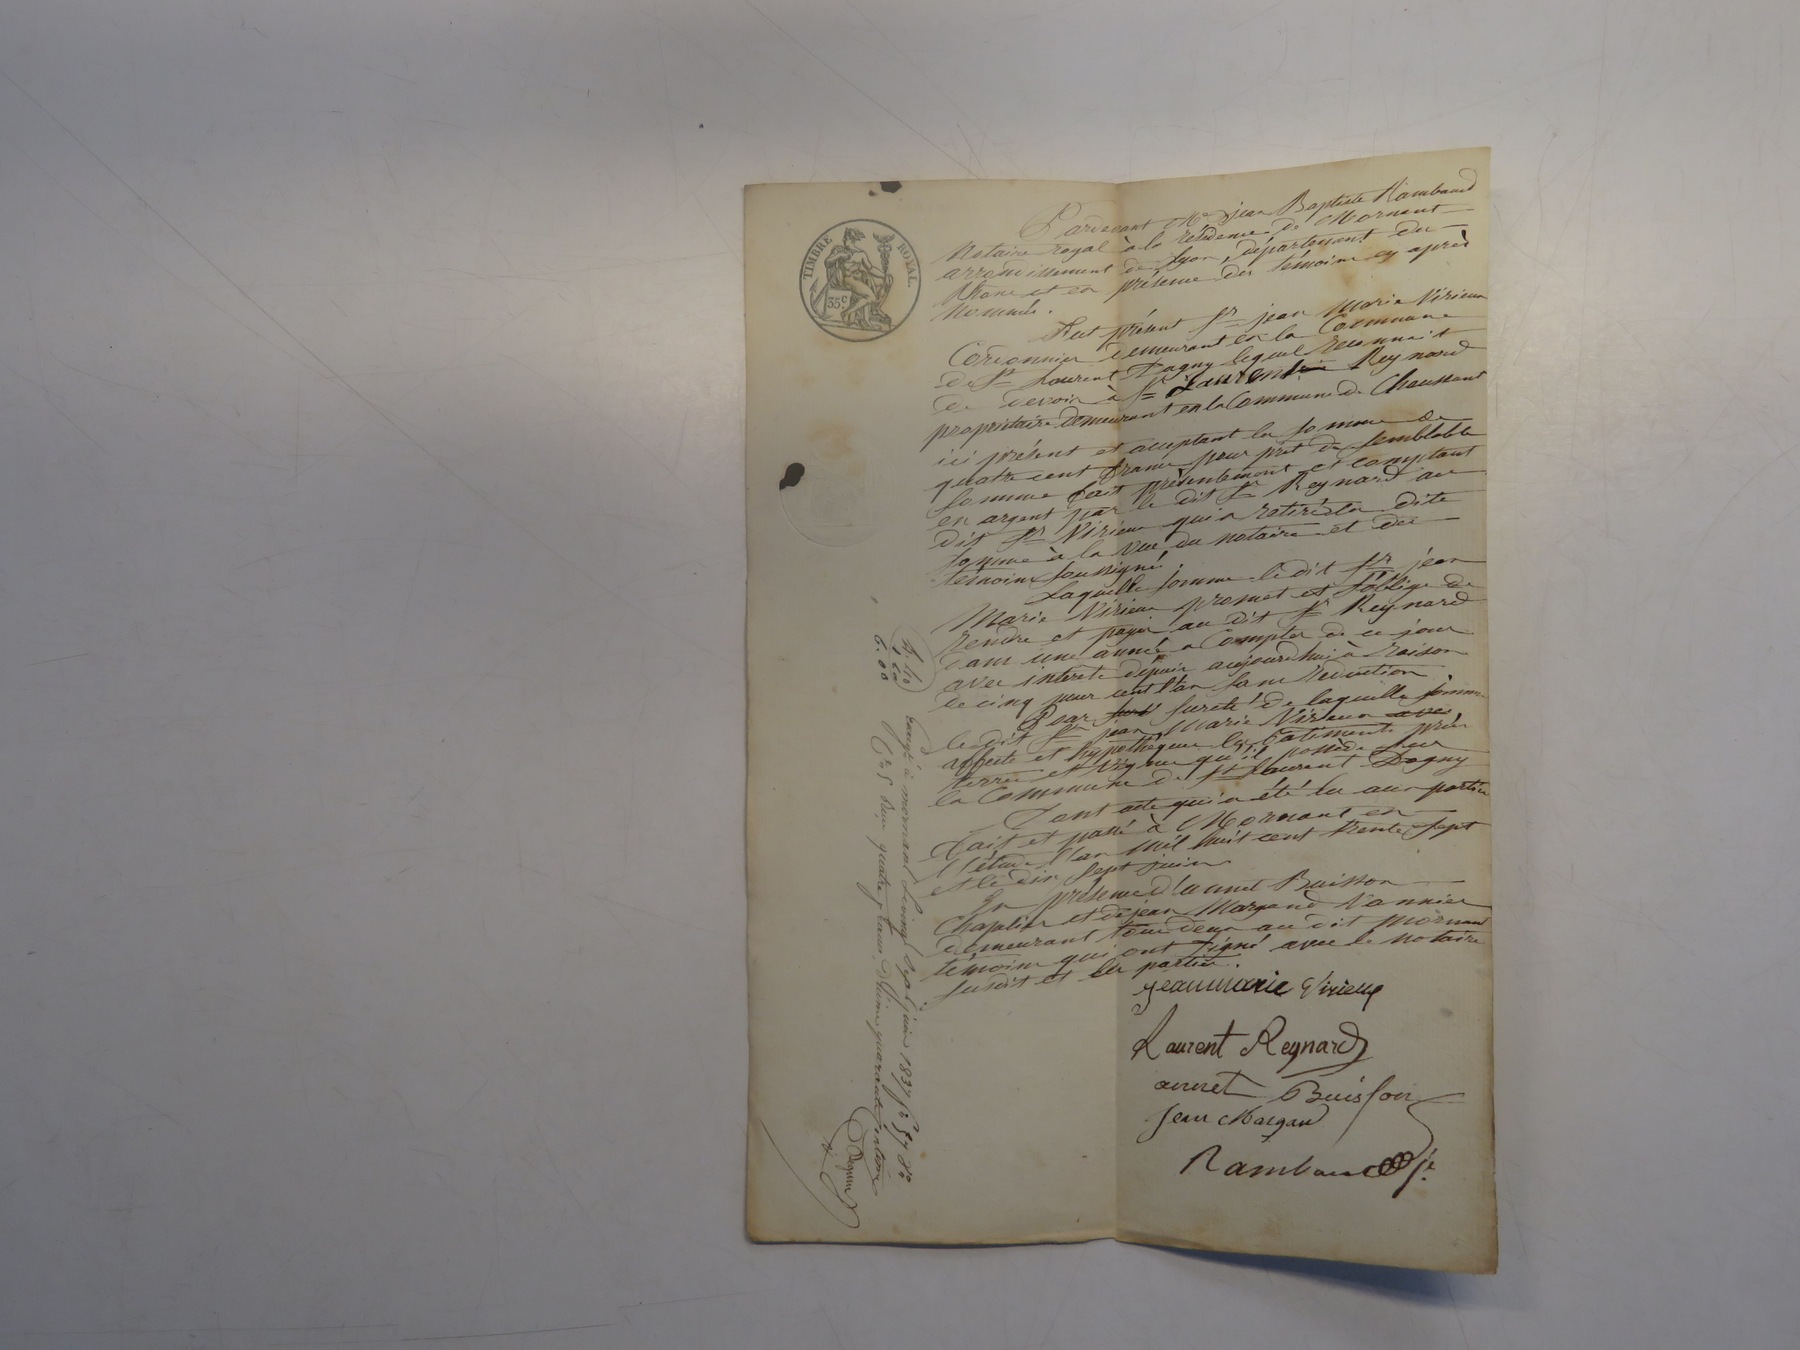 TIMBRE ROYAL
35c
Pardevant Me jean Baptiste Rambaud
Notaire royal à la résidence de Mornant
arrondissement de Lyon, département du
Rhone et en présence des témoins cy après
Nommés.
Fut présent Sr jean Marie Virieux
Cordonnier demeurant en la Commune
de St Laurent Dagny lequel reconnait
de devoir à Sr Laurent Reynard
propriétaire demeurant en la Commune de Chaussant
ici présent et acceptant la somme de
quatre cent francs pour prêt de semblable
somme fait présentement et comptant
en argent par le dit Sr Reynard au
dit Sr Virieux qui a retiré la dite
somme à la vue du notaire et des
témoins soussignés.
Laquelle somme le dit Sr jean
Marie Virieux promet et s'oblige de
rendre et payer au dit Sr Reynard
dans une année a Compter de ce jour
avec intérêts depuis aujourdhui à raison
de cinq pour cent l'an sans réduction
Pour sureté de laquelle somme
le dit Sr jean Marie Virieux
affecte et hypothèque les batiments prés
terres et vignes qu'il possède sur
la Commune de St Laurent Dagny
Dont acte qui a été lu aux parties
fait et passé à Mornant en
l'étude l'an mil huit cent trente sept
et le dix sept juin
En présence d'annet Buisson
Chapelier et de jean Margand Vannier
demeurant tous deux au dit Mornant
témoins qui ont signé avec le notaire
susdit et les parties.
jeanmarie Virieux
Laurent Reynard
annet Buisson
Jean Margand
Rambaud
Enregé à mornant le vingt sept juin 1837 fo 57
Reçu quatre francs, dixième quarante centimes